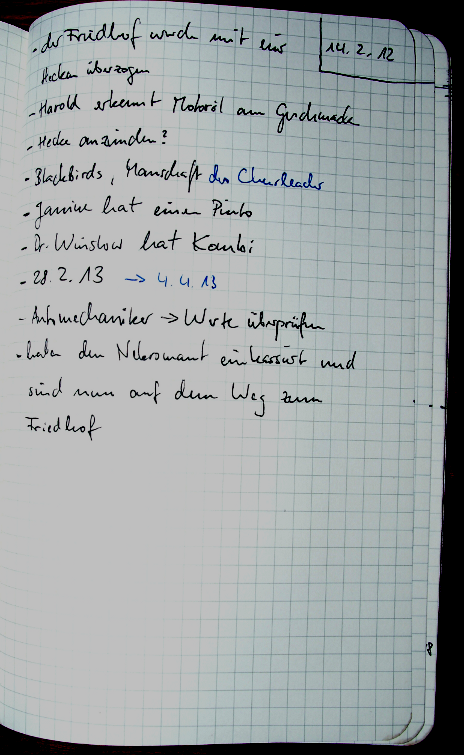 14.2.12
- der Friedhof wurde mit ein
Hecken überzogen
- Harold erkennt Motoröl am Geschmack
- Hecke anzünden?
- BlackBirds, Mannschaft der Cheerleader
- Janine hat einen Pinto
- Dr. Winslow hat Kombi
- 28.2.13 → 4.4.13
- Automechaniker → Worte überprüfen
- haben den einkassiert und
sind nun auf dem Weg zum
Friedhof
8